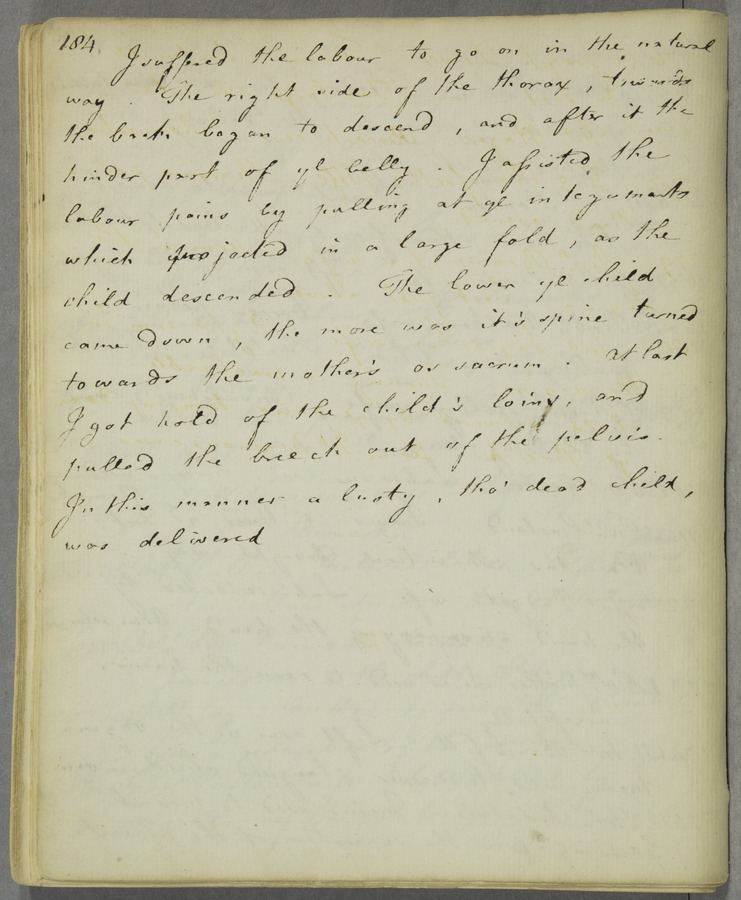 184
I suffered the labour to go on in the natural
way. The right side of the thorax, towards
the back began to descend, and after it the
hinder part of ye belly. I assisted the
labour pains by pulling at ye integuments
which projected in a large fold, as the
child descended. The lower ye child
came down, the more was it's spine turned
towards the mother's os sacrum. At last
I got hold of the child's loins, and
pulled the breech out of the pelvis.
In this manner a lusty, tho' dead child,
was delivered